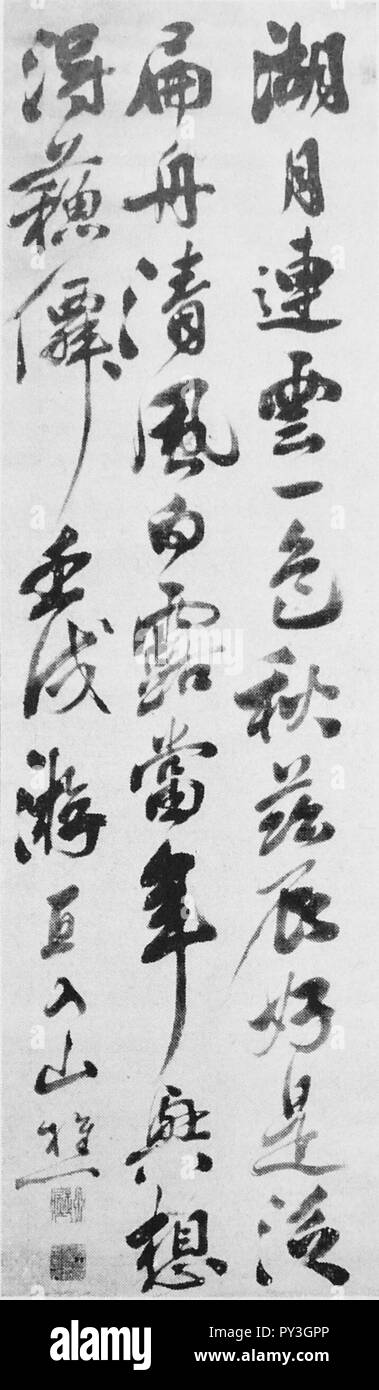 湖月連雲一色秋茲辰好是泛
扁舟清風白露當年興想
得蘇僊壬戌游直入山樵
alamy
Image ID: PY3GPP
www.alamy.com